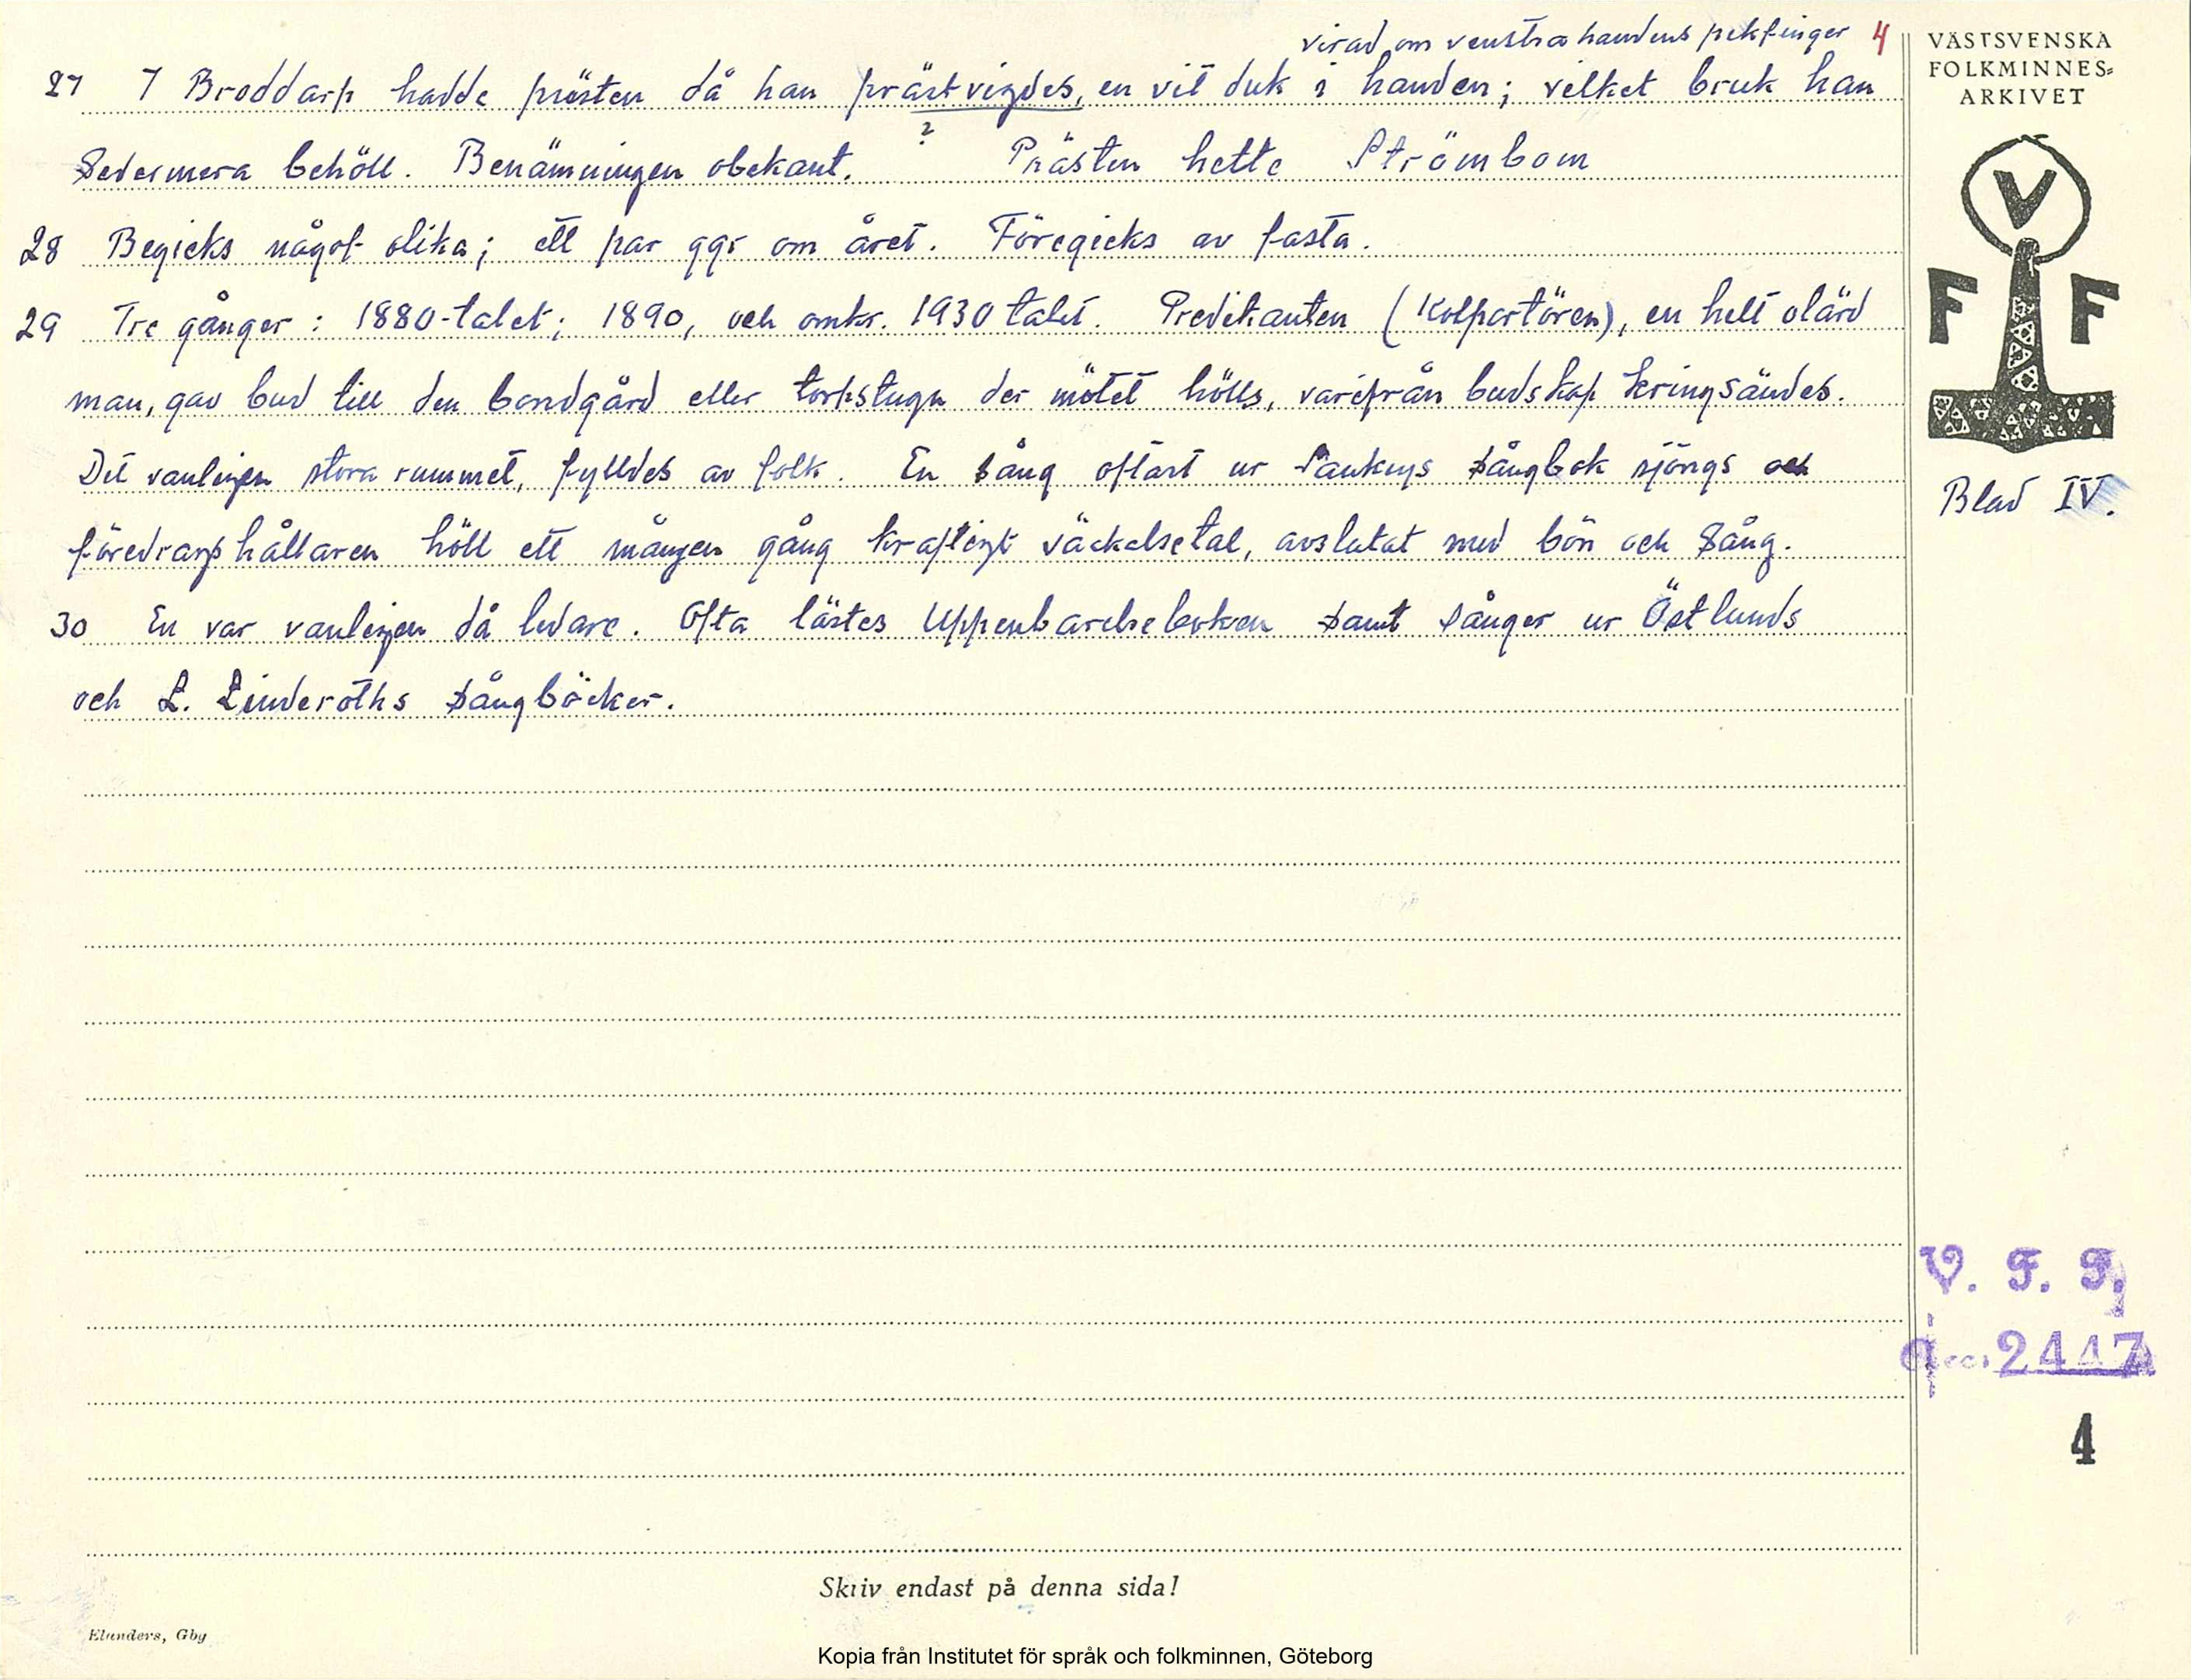 virad om venstra handens pekfinger 4
27 I Broddarp hadde prästen då han prästvigdes, en vit duk i handen; vilket bruk han
?
Sedermera behöll. Benämningen obekant. Prästen hette Strömbom
28 Begicks något olika; ett par ggr om året. Föregicks av fasta.
29 Tre gånger: 1880-talet; 1890, och omkr. 1930 talet. Predikanten (Kolportören), en helt olärd
man, gav bud till den bondgård eller torpstuga der mötet hölls, varifrån budskap kringsändes.
Det vanligen stora rummet, fylldes av folk. En sång oftast ur Sankeys sångbok sjöngs och
föredragshållaren höll ett mången gång kraftigt väckelsetal, avslutat med bön och Sång.
30 En var vanligen då ledare. Ofta lästes Uppenbarelseboken samt sånger ur Östlunds
och L. Linderoths sångböcker.
VÄSTSVENSKA
FOLKMINNES=
ARKIVET
V
F F
Blad IV.
V. F. F.
Acc. 2447
4
Skriv endast på denna sida!
Elanders, Gbg
Kopia från Institutet för språk och folkminnen, Göteborg